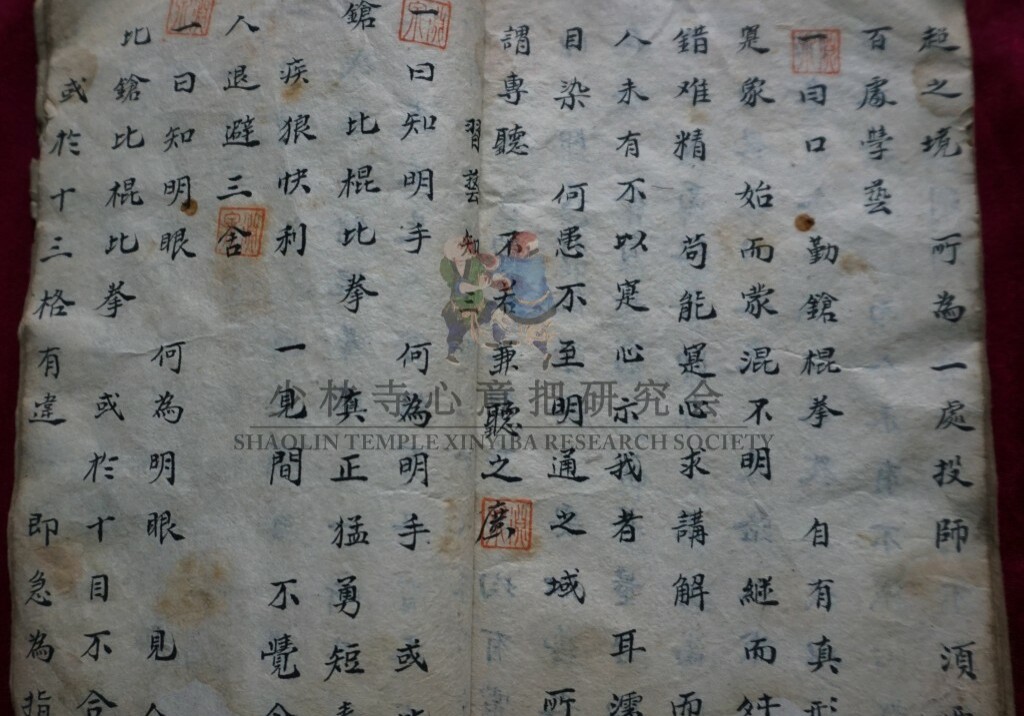 超之境 所為一處投師 須
百處學藝
一曰口 勤鎗棍拳 自有真形
是象 始而蒙混不明 継而
錯难精 苟能寔心求講解 而
人未有不以寔心示我者 耳濡
目染 何愚不至明通之域 所
謂專聽 不若兼聽之廣
習藝知三
一曰知明手 何為明手 或
鎗 比棍比拳 真正猛勇短
疾狼快利 一見間 不覺令
人退避三舍
一曰知明眼 何為明眼 見
比鎗比棍比拳 或於十目不合
或於十三格有違 即急為指
少林寺心意把研究会
SHAOLIN TEMPLE XINYIBA RESEARCH SOCIETY